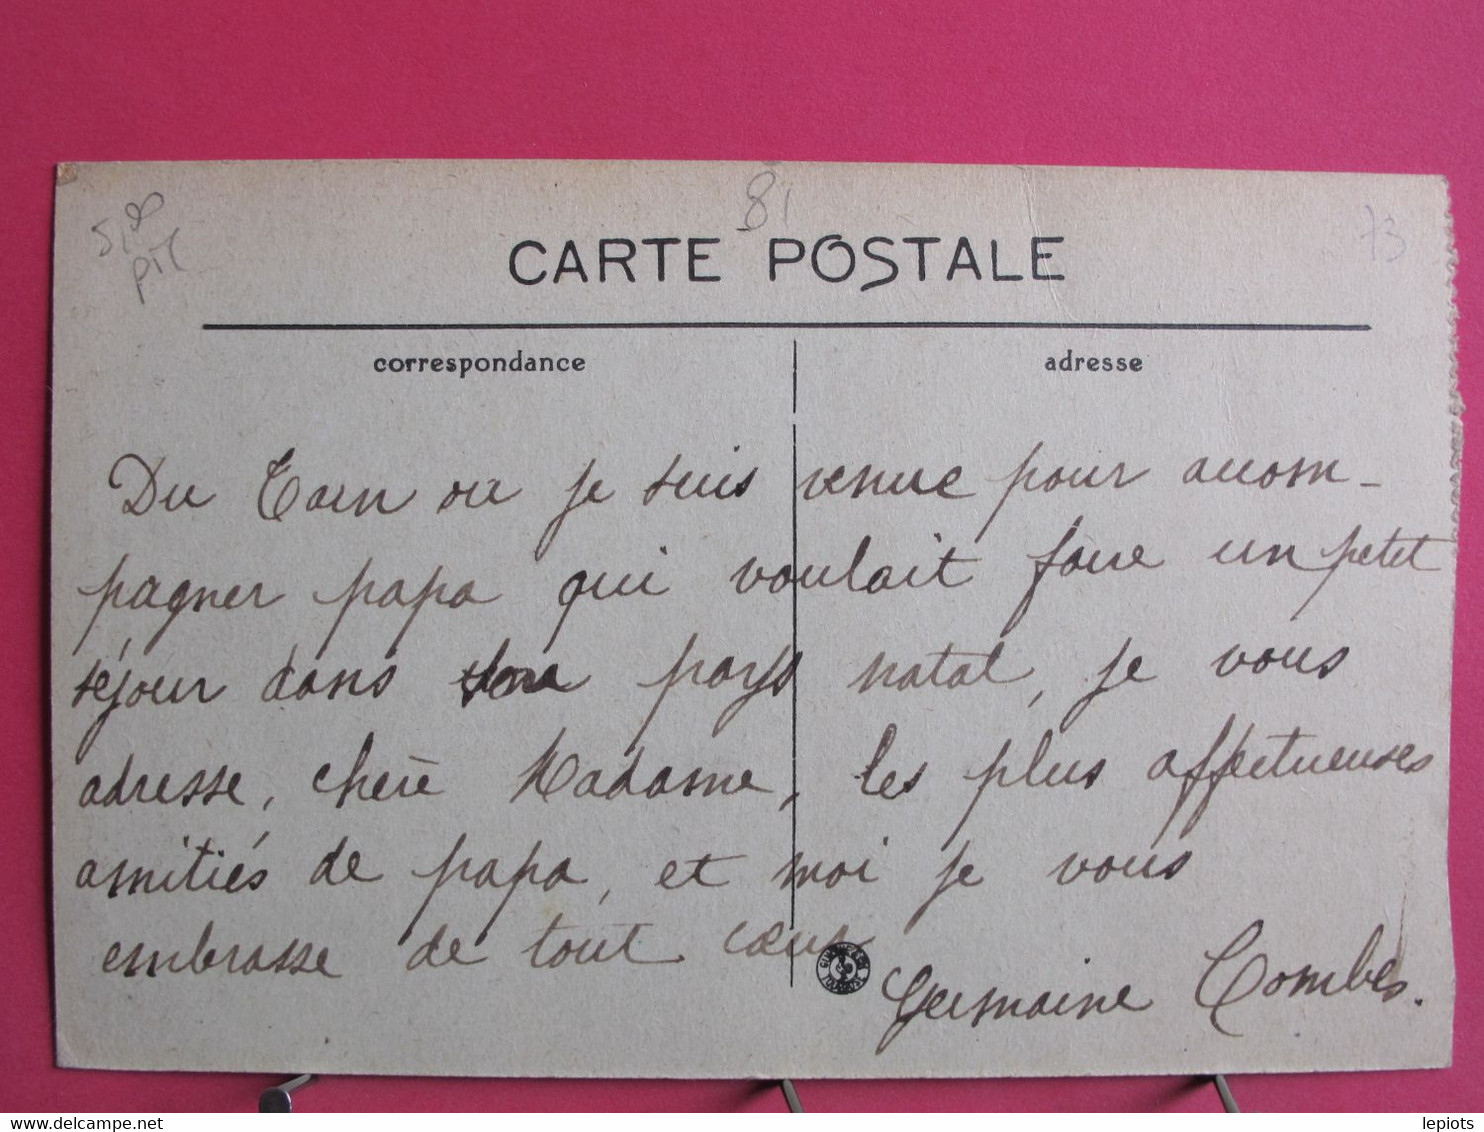 81
73
CARTE POSTALE
correspondance
adresse
Du Tarn ou je suis venue pour accom-
pagner papa qui voulait faire un petit
séjour dans son pays natal, je vous
adresse, chère Madame, les plus affectueuses
amitiés de papa, et moi je vous
embrasse de tout cœur
Germaine Combes.
lepiots